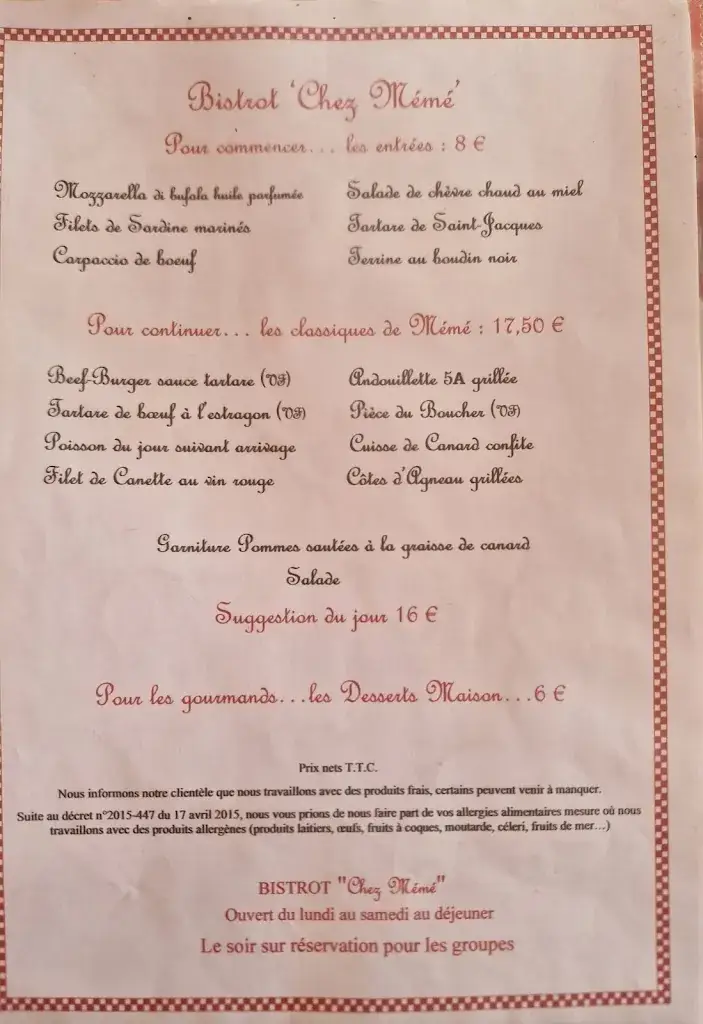 Bistrot 'Chez Mémé'
Pour commencer... les entrées : 8 €
Mozzarella di bufala huile parfumée
Salade de chèvre chaud au miel
Filets de Sardine marinés
Tartare de Saint-Jacques
Carpaccio de boeuf
Terrine au boudin noir
Pour continuer... les classiques de Mémé : 17,50 €
Beef-Burger sauce tartare (VF)
Andouillette 5A grillée
Tartare de bœuf à l'estragon (VF)
Pièce du Boucher (VF)
Poisson du jour suivant arrivage
Cuisse de Canard confite
Filet de Canette au vin rouge
Côtes d'Agneau grillées
Garniture Pommes sautées à la graisse de canard
Salade
Suggestion du jour 16 €
Pour les gourmands...les Desserts Maison...6 €
Prix nets T.T.C.
Nous informons notre clientèle que nous travaillons avec des produits frais, certains peuvent venir à manquer.
Suite au décret n°2015-447 du 17 avril 2015, nous vous prions de nous faire part de vos allergies alimentaires mesure où nous
travaillons avec des produits allergènes (produits laitiers, œufs, fruits à coques, moutarde, céleri, fruits de mer...)
BISTROT "Chez Mémé"
Ouvert du lundi au samedi au déjeuner
Le soir sur réservation pour les groupes